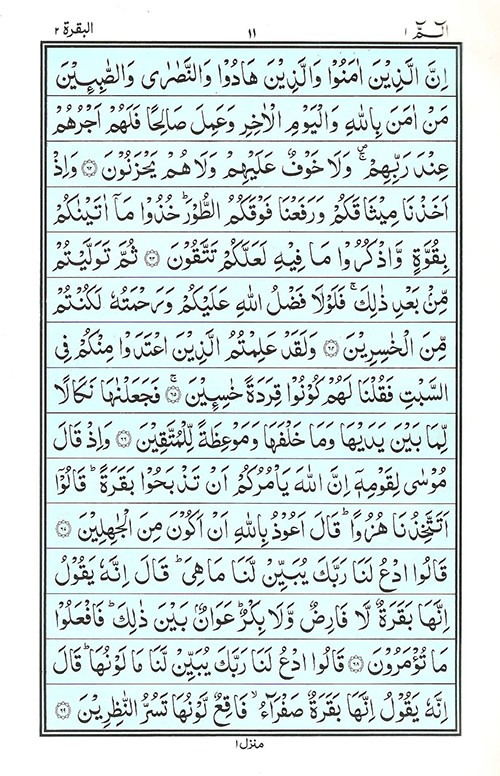 الٓمّٓ ۱ ۱۱ البقرة ۲
اِنَّ الَّذِيۡنَ اٰمَنُوۡا وَالَّذِيۡنَ هَادُوۡا وَالنَّصٰرٰى وَالصّٰبِـِٕيۡنَ
مَنۡ اٰمَنَ بِاللّٰهِ وَالۡيَوۡمِ الۡاٰخِرِ وَعَمِلَ صَالِحًا فَلَهُمۡ اَجۡرُهُمۡ
عِنۡدَ رَبِّهِمۡ ۚۖ وَلَا خَوۡفٌ عَلَيۡهِمۡ وَلَا هُمۡ يَحۡزَنُوۡنَ ﴿۶۲﴾ وَاِذۡ
اَخَذۡنَا مِيۡثَاقَكُمۡ وَرَفَعۡنَا فَوۡقَكُمُ الطُّوۡرَؕ خُذُوۡا مَاۤ اٰتَيۡنٰكُمۡ
بِقُوَّةٍ وَّاذۡكُرُوۡا مَا فِيۡهِ لَعَلَّكُمۡ تَتَّقُوۡنَ ﴿۶۳﴾ ثُمَّ تَوَلَّيۡتُمۡ
مِّنۡۢ بَعۡدِ ذٰلِكَۚ فَلَوۡلَا فَضۡلُ اللّٰهِ عَلَيۡكُمۡ وَرَحۡمَتُهٗ لَكُنۡتُمۡ
مِّنَ الۡخٰسِرِيۡنَ ﴿۶۴﴾ وَلَقَدۡ عَلِمۡتُمُ الَّذِيۡنَ اعۡتَدَوۡا مِنۡكُمۡ فِى
السَّبۡتِ فَقُلۡنَا لَهُمۡ كُوۡنُوۡا قِرَدَةً خٰسِـِٕيۡنَ ﴿۶۵﴾ۚ فَجَعَلۡنٰهَا نَكَالًا
لِّمَا بَيۡنَ يَدَيۡهَا وَمَا خَلۡفَهَا وَمَوۡعِظَةً لِّلۡمُتَّقِيۡنَ ﴿۶۶﴾ وَاِذۡ قَالَ
مُوۡسٰى لِقَوۡمِهٖۤ اِنَّ اللّٰهَ يَاۡمُرُكُمۡ اَنۡ تَذۡبَحُوۡا بَقَرَةًؕ قَالُوۡۤا
اَتَتَّخِذُنَا هُزُوًاؕ قَالَ اَعُوۡذُ بِاللّٰهِ اَنۡ اَكُوۡنَ مِنَ الۡجٰهِلِيۡنَ ﴿۶۷﴾
قَالُوا ادۡعُ لَنَا رَبَّكَ يُبَيِّنۡ لَّنَا مَا هِىَؕ قَالَ اِنَّهٗ يَقُوۡلُ
اِنَّهَا بَقَرَةٌ لَّا فَارِضٌ وَّلَا بِكۡرٌؕ عَوَانٌۢ بَيۡنَ ذٰلِكَؕ فَافۡعَلُوۡا
مَا تُؤۡمَرُوۡنَ ﴿۶۸﴾ قَالُوا ادۡعُ لَنَا رَبَّكَ يُبَيِّنۡ لَّنَا مَا لَوۡنُهَاؕ قَالَ
اِنَّهٗ يَقُوۡلُ اِنَّهَا بَقَرَةٌ صَفۡرَآءُۙ فَاقِعٌ لَّوۡنُهَا تَسُرُّ النّٰظِرِيۡنَ ﴿۶۹﴾
منزل ۱